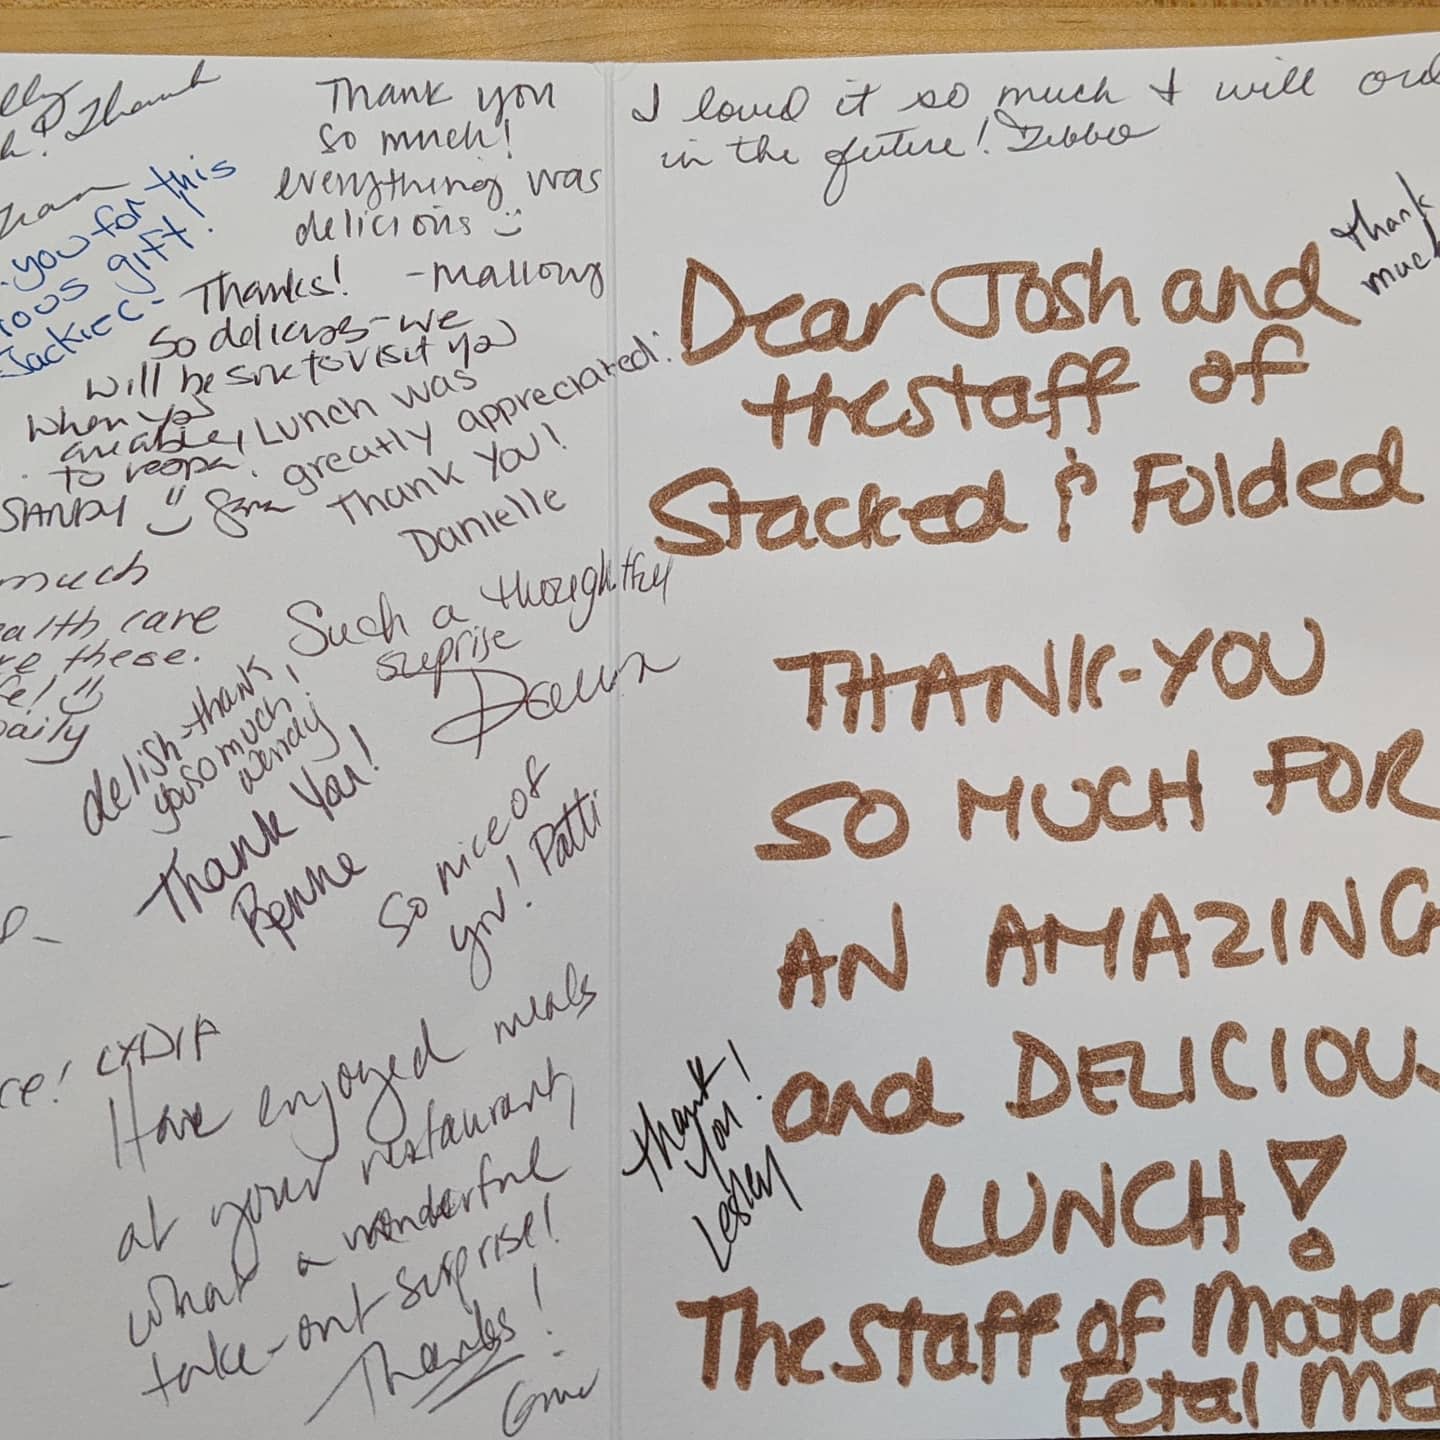 Thank
Thank you
so much!
everything was
delicious
-Mallory
you for this
gift!
Jackie C-
Thanks!
So delicious - we
will be sure to visit you
when you
are able,
to reopen.
SANDY
Lunch was
greatly appreciated.
Thank You!
Danielle
much
health care
these.
Daily
Such a thoughtful
surprise
delish-thank
you so much!
wendy
Thank You!
So nice of
you! Patti
LYDIA
Have enjoyed meals
at your restaurant,
what a wonderful
take-out surprise!
Thanks!
I loved it so much & will
in the future! Debbie
Thank
much
Dear Josh and
the staff of
Stacked & Folded
THANK-YOU
SO MUCH FOR
AN AMAZING
and DELICIOU
LUNCH!
Thank
You!
Lesley
The staff of Mater
Fetal Me